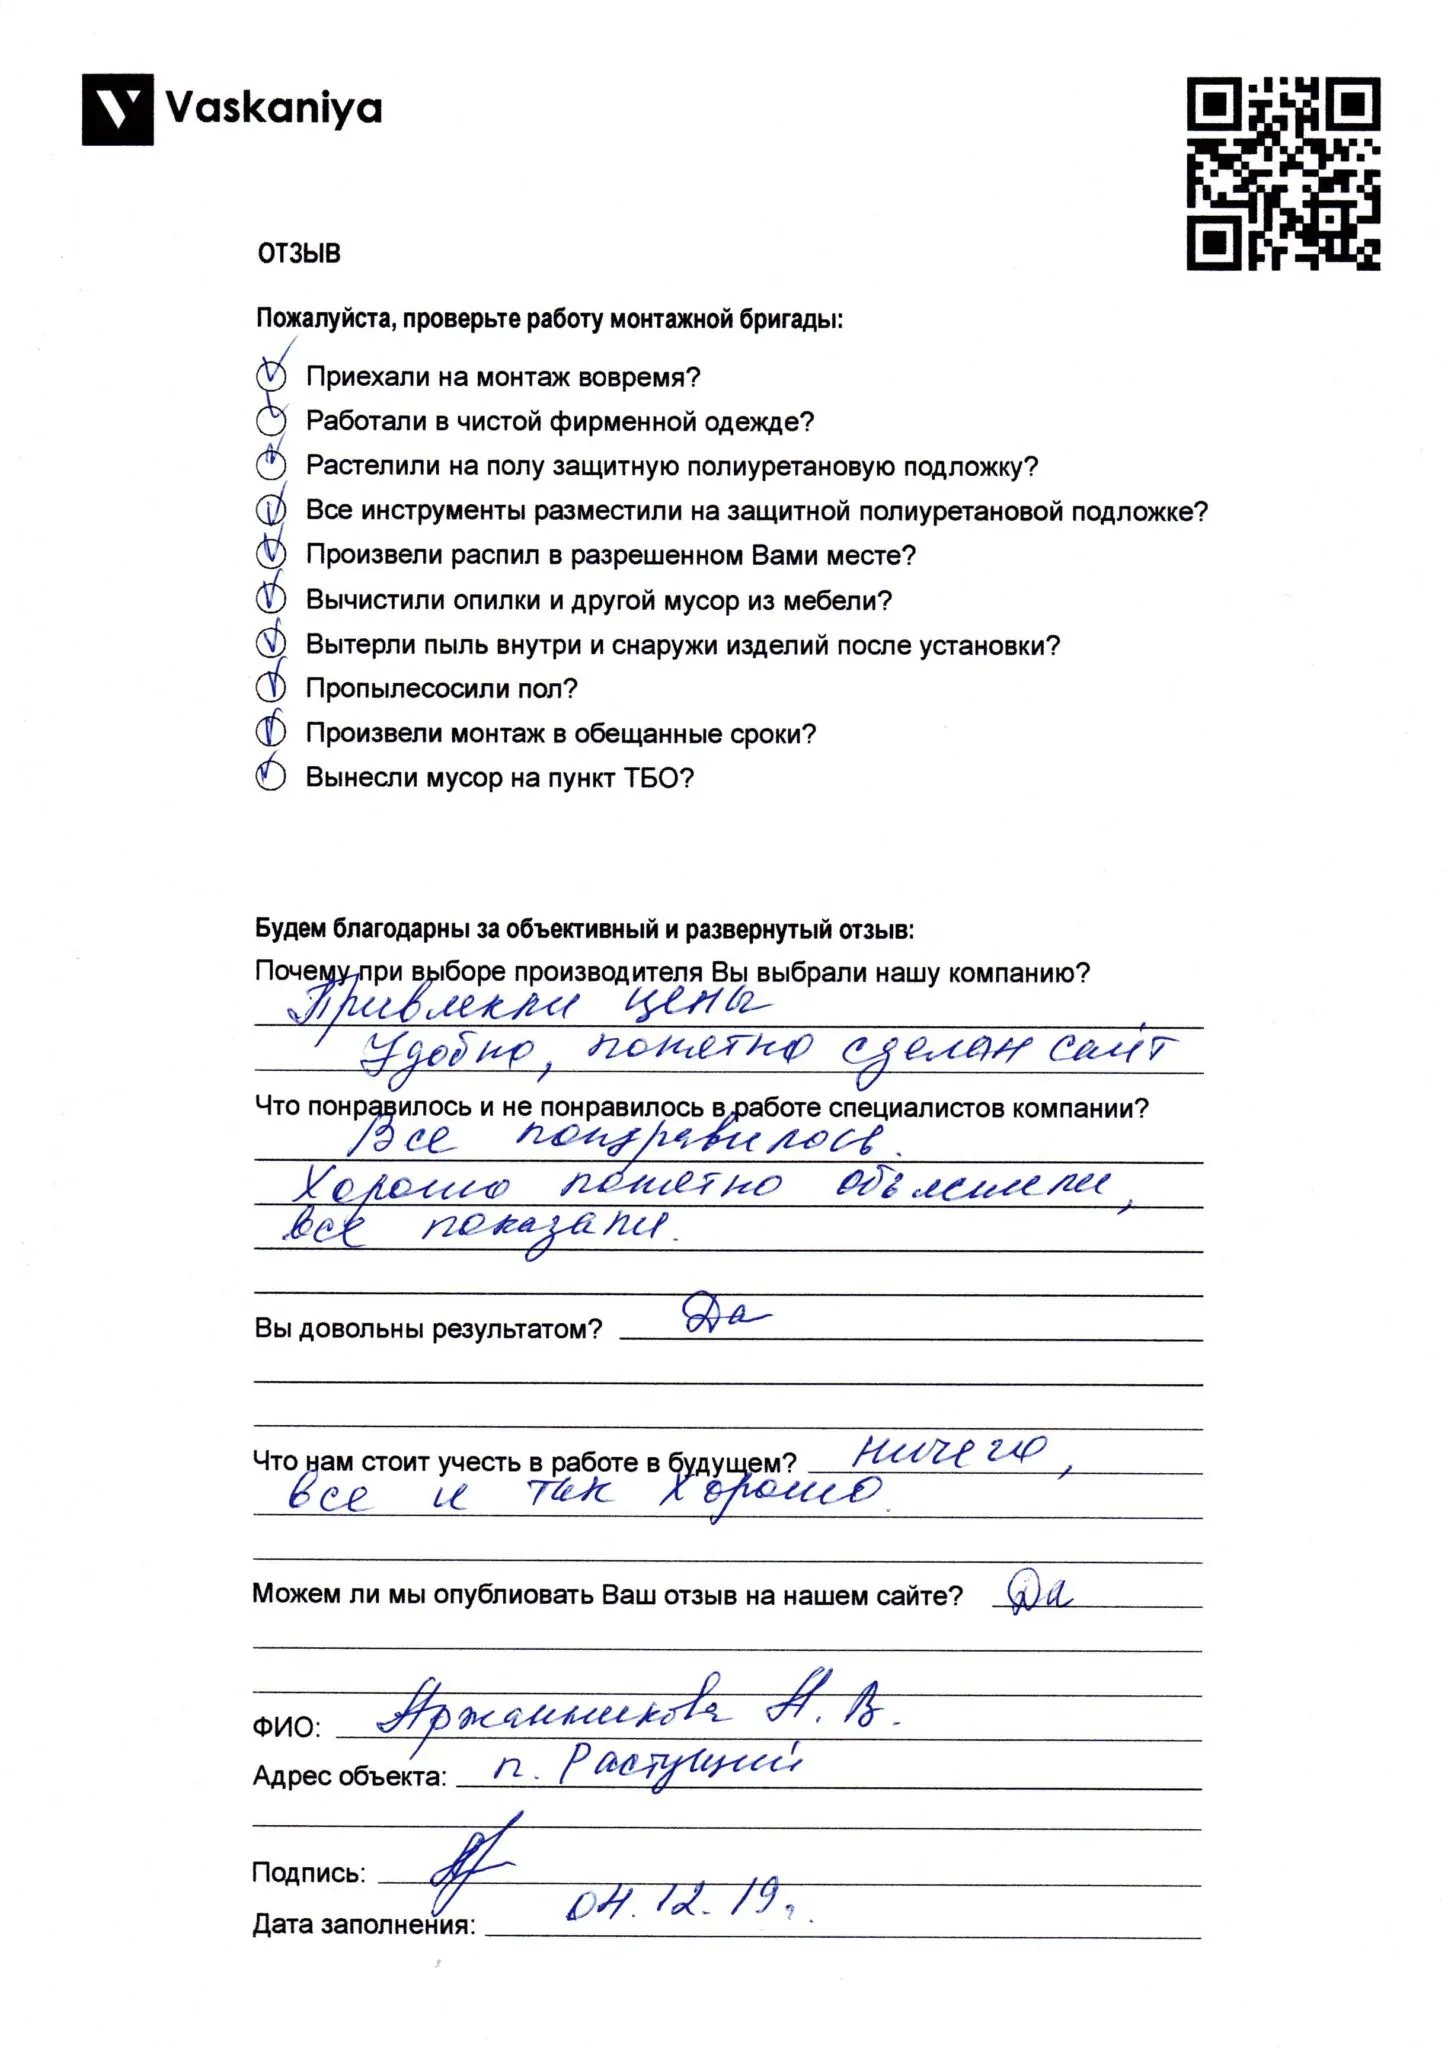 Vaskaniya
ОТЗЫВ
Пожалуйста, проверьте работу монтажной бригады:
Приехали на монтаж вовремя?
Работали в чистой фирменной одежде?
Растелили на полу защитную полиуретановую подложку?
Все инструменты разместили на защитной полиуретановой подложке?
Произвели распил в разрешенном Вами месте?
Вычистили опилки и другой мусор из мебели?
Вытерли пыль внутри и снаружи изделий после установки?
Пропылесосили пол?
Произвели монтаж в обещанные сроки?
Вынесли мусор на пункт ТБО?
Будем благодарны за объективный и развернутый отзыв:
Почему при выборе производителя Вы выбрали нашу компанию?
Привлекли цены
Удобно, понятно сделан сайт
Что понравилось и не понравилось в работе специалистов компании?
Все понравилось.
Хорошо понятно объяснили,
все показали.
Вы довольны результатом? Да
Что нам стоит учесть в работе в будущем? ничего,
все и так хорошо.
Можем ли мы опублиовать Ваш отзыв на нашем сайте? Да
ФИО: Аржанникова Н. В.
Адрес объекта: п. Растущий
Подпись:
Дата заполнения: 04.12.19г.